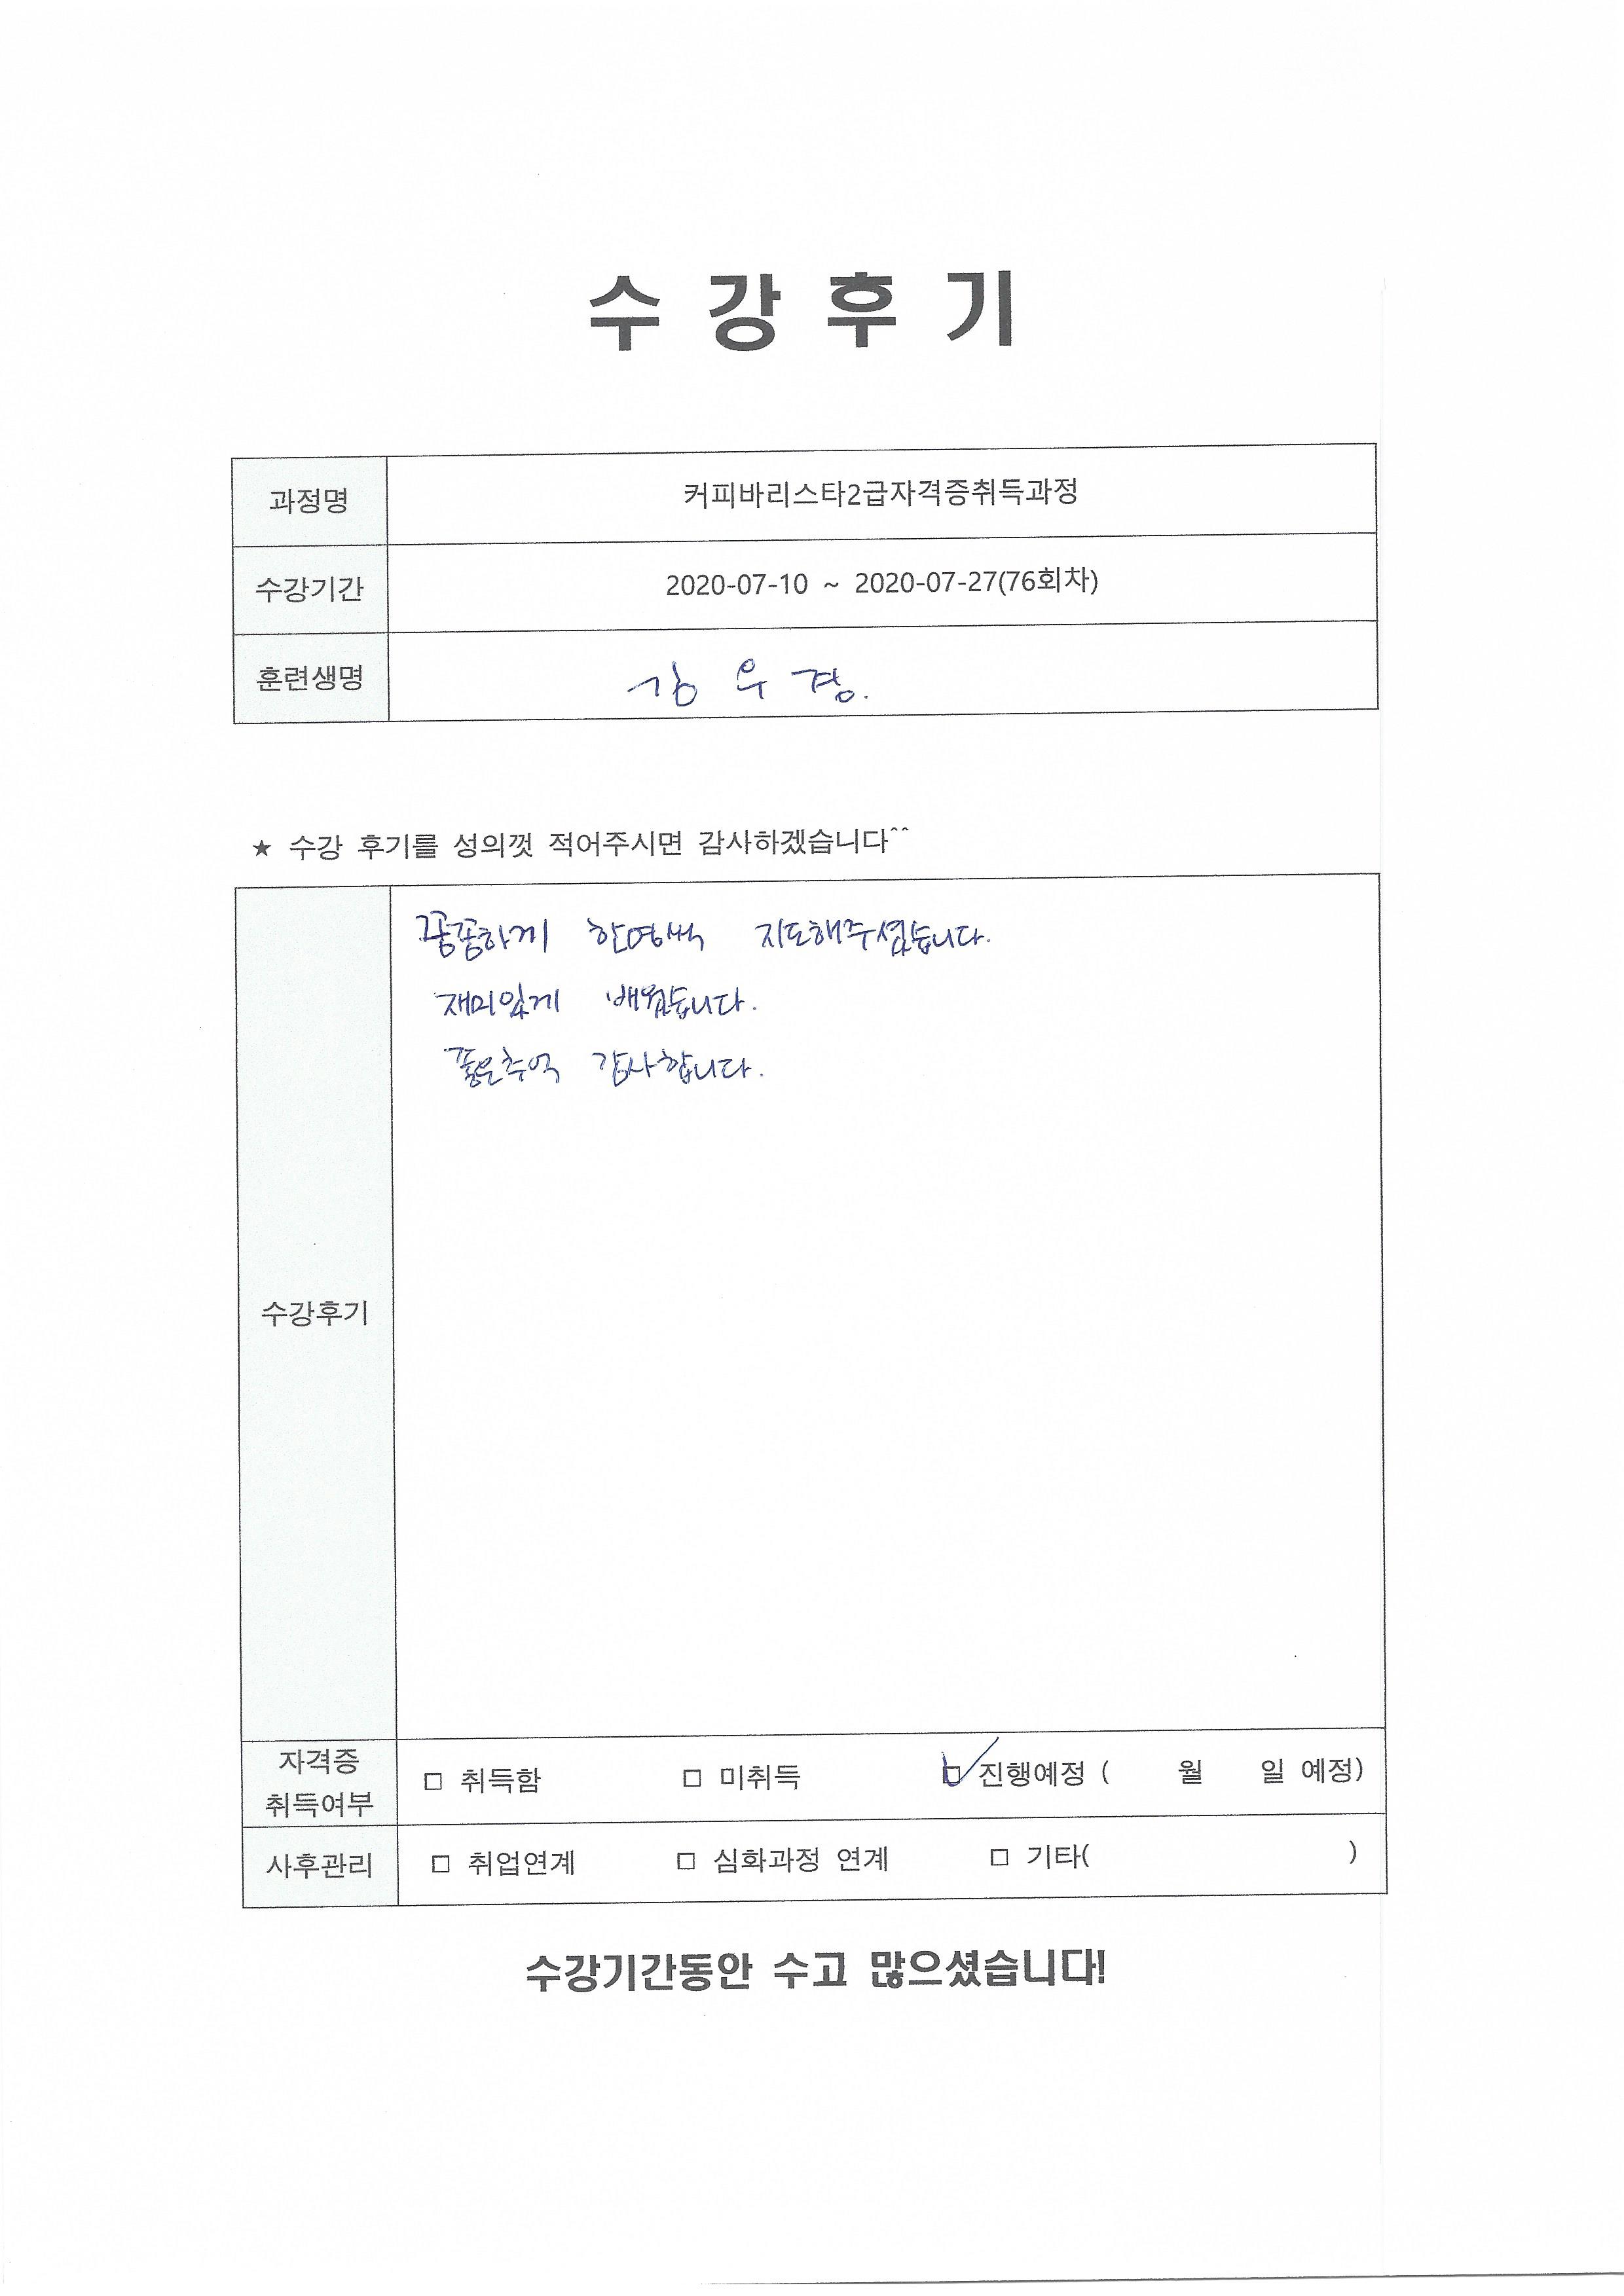 수 강 후 기
과정명 커피바리스타2급자격증취득과정
수강기간 2020-07-10 ~ 2020-07-27(76회차)
훈련생명 김 우 경.
★ 수강 후기를 성의껏 적어주시면 감사하겠습니다^^
꼼꼼하게 한명씩 지도해주셨습니다.
재미있게 배웠습니다.
좋은추억 감사합니다.
수강후기
자격증 취득여부 □ 취득함 □ 미취득 ☑ 진행예정 ( 월 일 예정)
사후관리 □ 취업연계 □ 심화과정 연계 □ 기타( )
수강기간동안 수고 많으셨습니다!